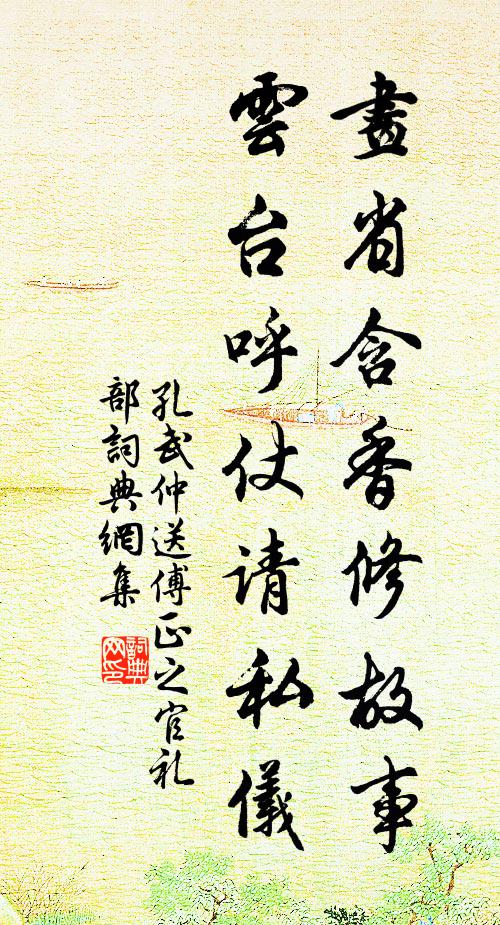 畫省含香修故事
雲台呼仗请私儀
孔武仲送傅正之官礼
部詞典網集
詞典
网印